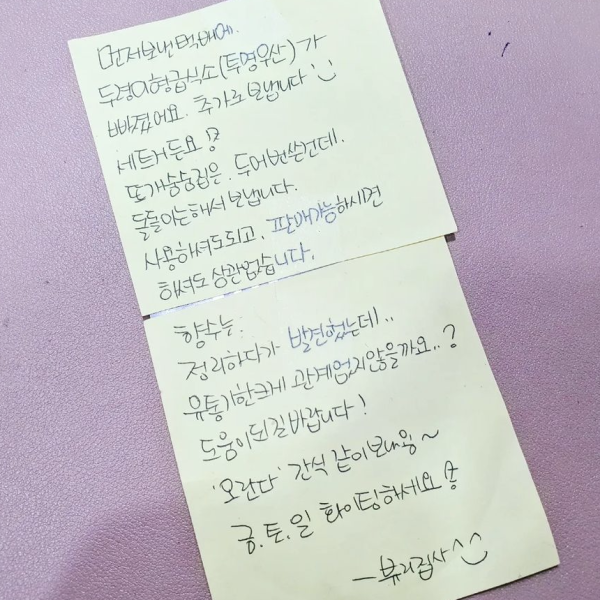 먼저보낸택배에.
두령이형급식소(투명우산)가
빠졌어요. 추가로보냅니다
세트거든요
또개숑숑집은. 두어번쓴건데.
돌돌이는해서보냅니다.
사용하셔도되고. 판매가능하시면
하셔도 상관없습니다.
향수는.
정리하다가 발견했는데..
유통기한크게 관계없지않을까요..?
도움이되길바랍니다!
'오란다' 간식 같이보내용~
금.토.일 화이팅하세요
-뷰리집사^^